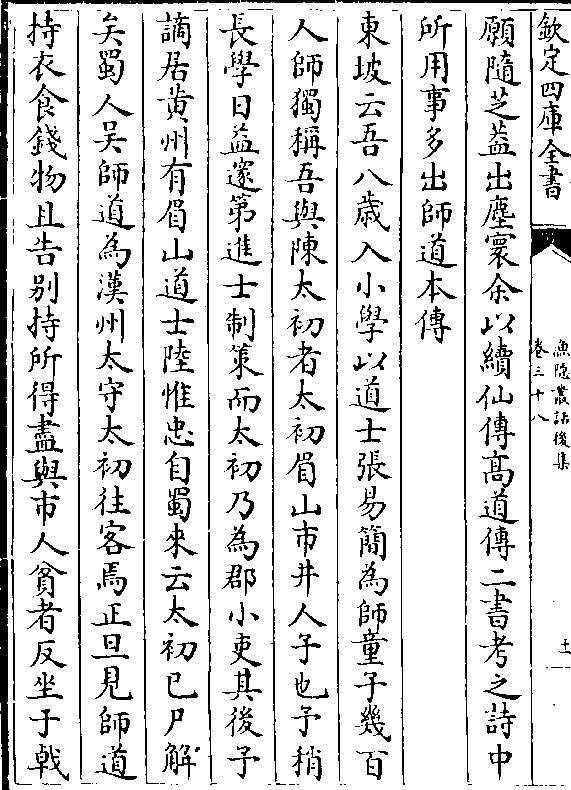 欽定四庫全書
漁隱叢話後集
卷三十八
十一
願隨芝葢出塵寰余以續仙傳高道傳二書考之詩中
所用事多出師道本傳
東坡云吾八歳入小學以道士張易簡為師童子幾百
人師獨稱吾與陳太初者太初眉山市井人子也予稍
長學日益遂第進士制策而太初乃為郡小吏其後予
謫居黄州有眉山道士陸惟忠自蜀來云太初已尸解
矣蜀人吳師道為漢州太守太初往客焉正旦見師道
持衣食錢物且告别持所得盡與市人貧者反坐于戟